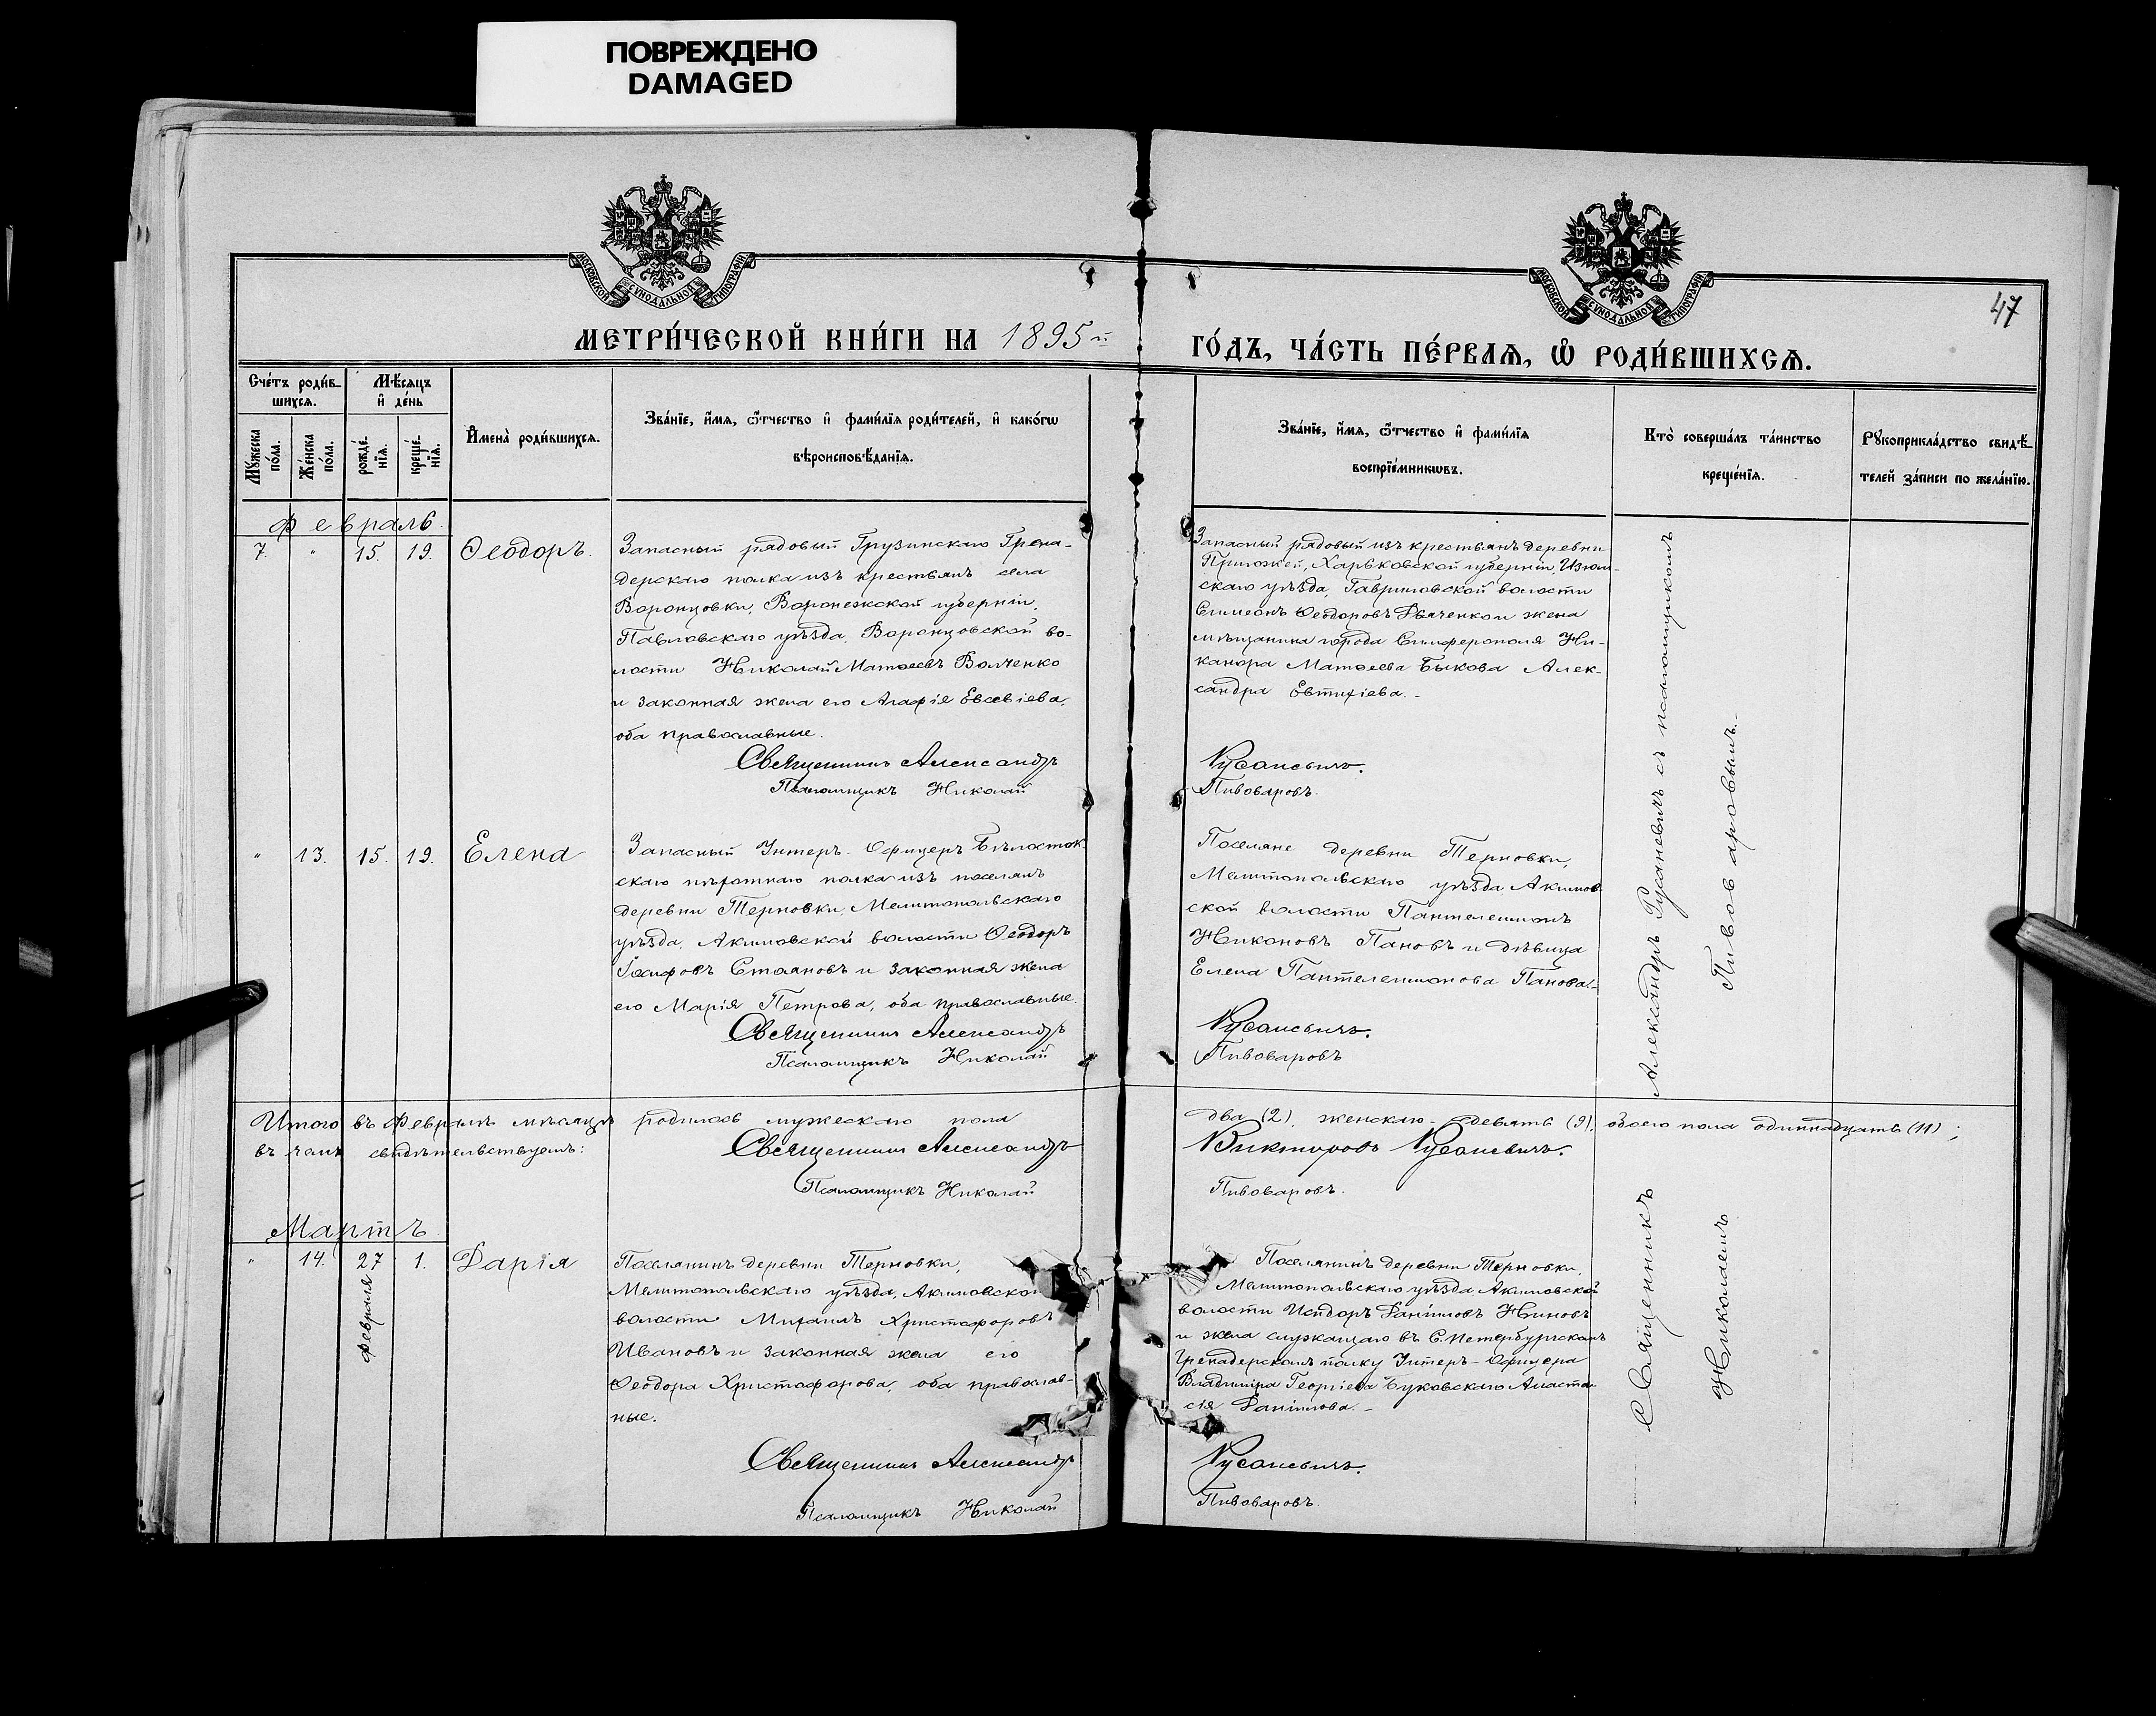 ПОВРЕЖДЕНО
DAMAGED
МОСКОВСКОЙ СѴНОДАЛЬНОЙ ТИПОГРАФІИ
МОСКОВСКОЙ СѴНОДАЛЬНОЙ ТИПОГРАФІИ
47
МЕТРИ́ЧЕСКОЙ КНИ́ГИ НА 1895й
ГО́ДЪ, ЧА́СТЬ ПЕ́РВАѦ, Ѡ҆ РОДИ́ВШИХСѦ.
Сче́тъ роди́в-
шихсѧ.
Мѣ́сѧцъ
и҆ де́нь
Мꙋ́жеска
по́ла.
Же́нска
по́ла.
рожде́-
нїѧ.
креще́-
нїѧ.
И҆мена̀ роди́вшихсѧ.
Зва́нїе, и҆́мѧ, ѻ҆́тчество и҆ фами́лїѧ роди́телей, и҆ како́гѡ
вѣроисповѣ́данїѧ.
Зва́нїе, и҆́мѧ, ѻ҆́тчество и҆ фами́лїѧ
воспрїе́мникѡвъ.
Кто̀ соверша́лъ та́инство
креще́нїѧ.
Рꙋкоприкла́дство свидѣ́-
телей за́писи по жела́нїю.
Февраль.
7. " 15. 19. Ѳеодоръ.
Запасный рядовый Грузинскаго Грена-
дерскаго полка изъ крестьянъ села
Воронцовки, Воронежской губерніи,
Павловскаго уѣзда, Воронцовской во-
лости Николай Матѳеевъ Волченко
и законная жена его Агафія Евсевіева,
оба православные.
Священникъ Александръ
Псаломщикъ Николай
Запасный рядовый изъ крестьянъ деревни
Харьковской губерніи, Изюм-
скаго уѣзда, Гавриловской волости
Симеонъ Ѳеодоровъ Дьяченко и жена
мѣщанина города Симферополя Ни-
канора Матѳеева Быкова Алек-
сандра Евтихіева.-
Русаневичъ.
Пивоваровъ.
" 13. 15. 19. Елена
Запасный Унтеръ-Офицеръ Бѣлосток-
скаго пѣхотнаго полка изъ поселянъ
деревни Терновки, Мелитопольскаго
уѣзда, Акимовской волости Ѳеодоръ
Іосифовъ Стояновъ и законная жена
его Марія Петрова, оба православные.
Священникъ Александръ
Псаломщикъ Николай
Поселяне деревни Терновки,
Мелитопольскаго уѣзда Акимов-
ской волости Пантелеимонъ
Никоновъ Пановъ и дѣвица
Елена Пантелеимонова Панова.-
Русаневичъ.
Пивоваровъ
Итого въ Февралѣ мѣсяцѣ родилось мужескаго пола два (2), женскаго- девять (9), обоего пола одиннадцать (11);
въ чемъ свидѣтельствуемъ:
Священникъ Александръ Викторовъ Русаневичъ.
Псаломщикъ Николай Пивоваровъ.
Мартъ.
" 14. 27 1. Дарія
Февраля
Поселянинъ деревни Терновки,
Мелитопольскаго уѣзда, Акимовской
волости Михаилъ Христофоровъ
Ивановъ и законная жена его
Ѳеодора Христофорова, оба православ-
ные.
Священникъ Александръ
Псаломщикъ Николай
Поселянинъ деревни Терновки,
Мелитопольскаго уѣзда, Акимовской
волости Исидоръ Даніиловъ Ниновъ
и жена служащаго въ С.Петербургскомъ
Гренадерскомъ полку Унтеръ-Офицера
Владиміра Георгіева Буковскаго Анаста-
сія Даніилова.-
Русаневичъ.
Пивоваровъ.
Священникъ Александръ Русаневичъ съ псаломщикомъ
Николаемъ Пивоваровымъ.-